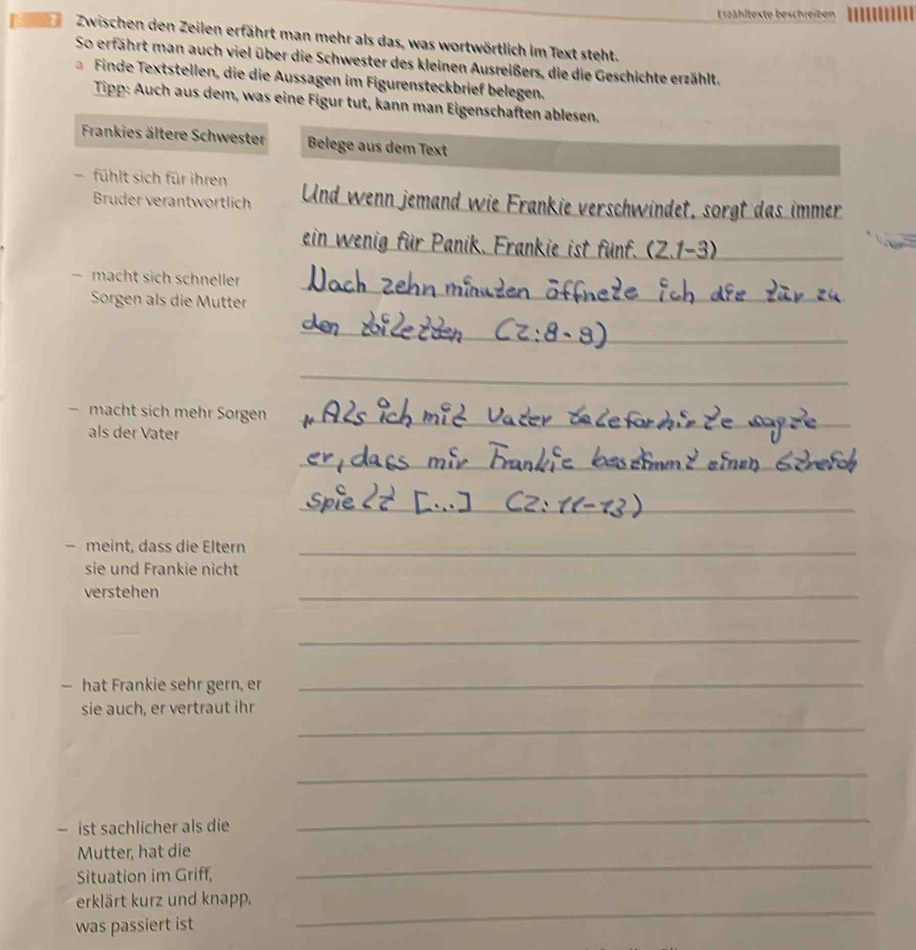 Erzähltexte beschreiben
7 Zwischen den Zeilen erfährt man mehr als das, was wortwörtlich im Text steht.
So erfährt man auch viel über die Schwester des kleinen Ausreißers, die die Geschichte erzählt.
a Finde Textstellen, die die Aussagen im Figurensteckbrief belegen.
Tipp: Auch aus dem, was eine Figur tut, kann man Eigenschaften ablesen.
Frankies ältere Schwester
Belege aus dem Text
– fühlt sich für ihren
Bruder verantwortlich
Und wenn jemand wie Frankie verschwindet, sorgt das immer
ein wenig für Panik. Frankie ist fünf. (Z. 1–3)
– macht sich schneller
Sorgen als die Mutter
Nach zehn minuten öffnete ich die tür zu
den toiletten (Z: 8-9)
– macht sich mehr Sorgen
als der Vater
"Als ich mit Vater teleforhirte sagte
er, dass mir Frankie bestimmt einen Streich
spielt [...] (Z: 11-13)
– meint, dass die Eltern
sie und Frankie nicht
verstehen
– hat Frankie sehr gern, er
sie auch, er vertraut ihr
– ist sachlicher als die
Mutter, hat die
Situation im Griff,
erklärt kurz und knapp,
was passiert ist